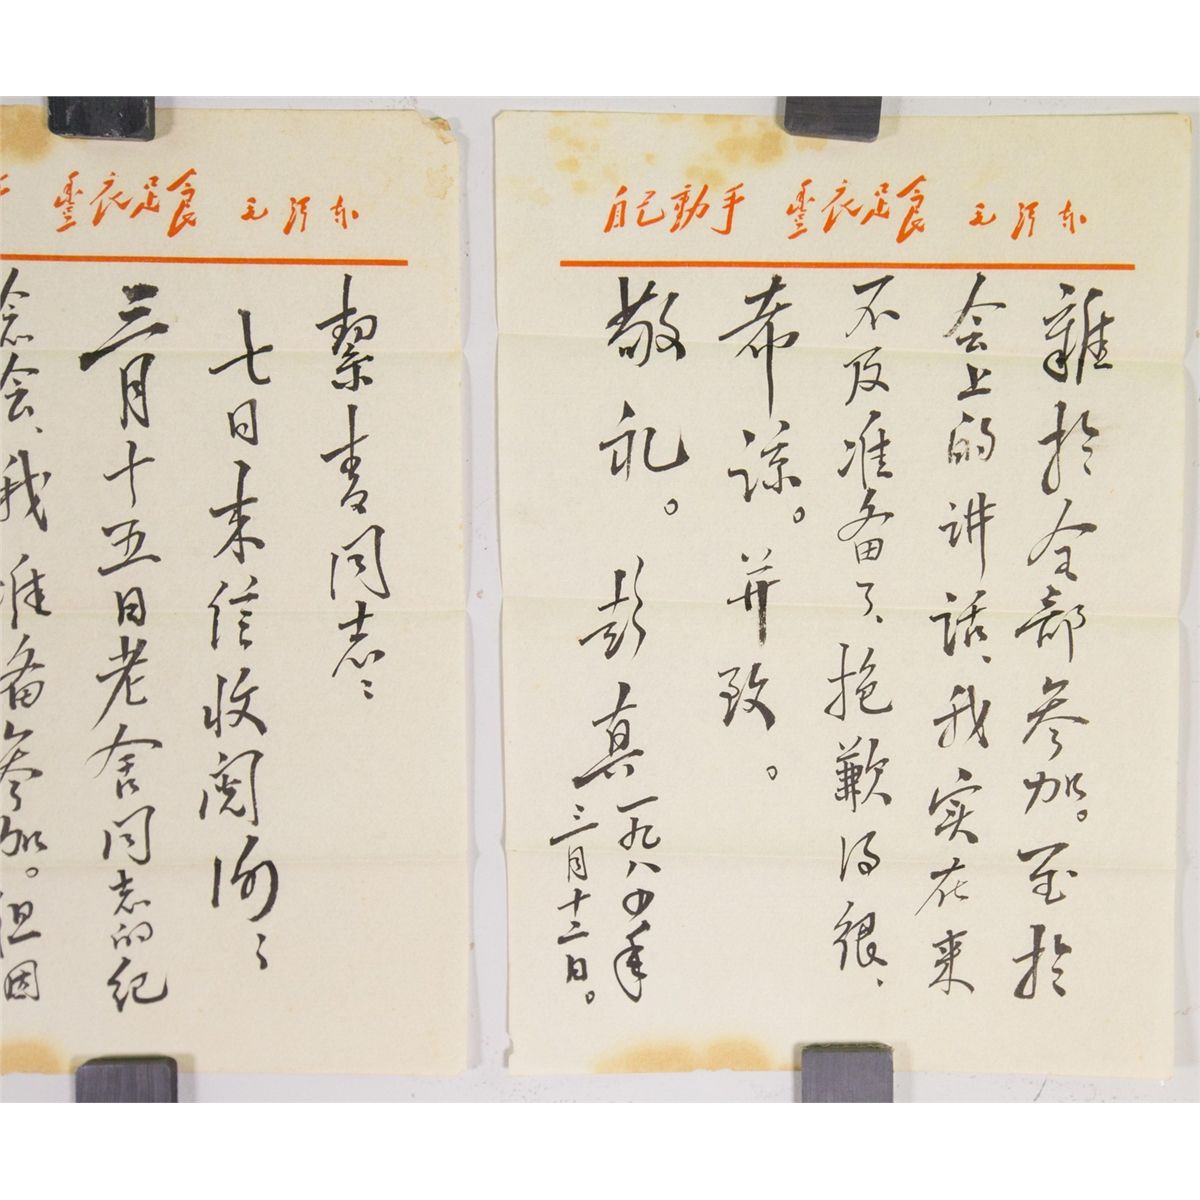 豐衣足食 毛泽东
絜青同志：
七日来信收阅
三月十五日老舍同志的纪
念会、我准备参加。但因
自己動手 豐衣足食 毛泽东
難於全部参加。至於
会上的讲话、我实在来
不及准备了、抱歉得很、
希谅。并致。
敬礼。彭真
一九八四年
三月十二日。